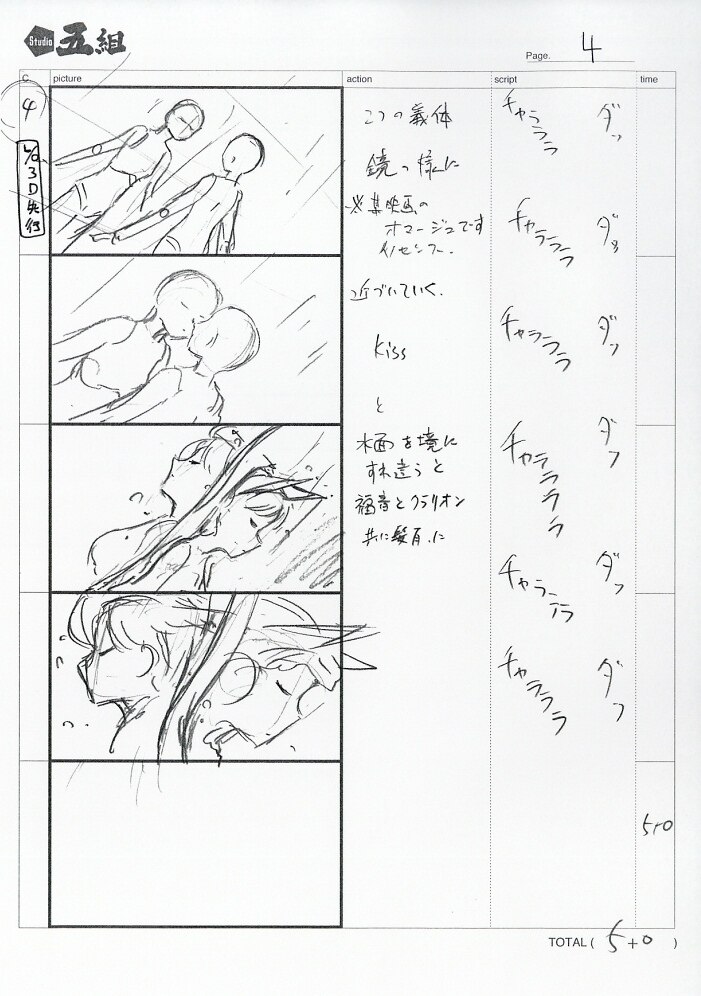 Studio 五組
Page. 4
C. picture action script time
4
L/O 3D先行
2つの義体
鏡の様に
※某映画の
オマージュです
イノセンス.
近づいていく.
kiss
と
水面を境に
すれ違うと
福音とクラリオン
共に髪有.に
チャラララ
チャラララ
チャラララ
チャラララ
チャラララ
チャラララ
ダッ
ダッ
ダッ
ダッ
ダッ
ダッ
5+0
TOTAL ( 5+0 )